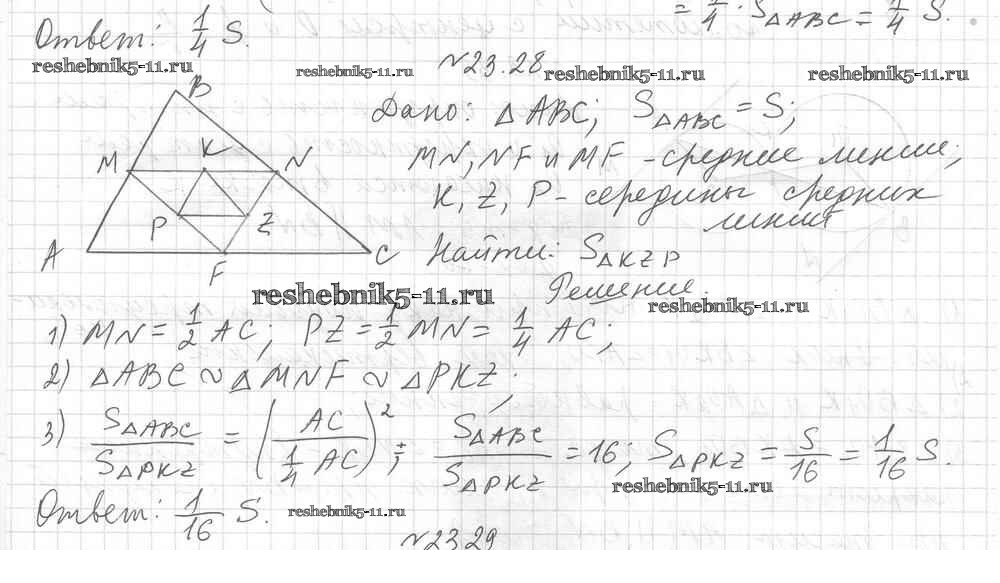 = 1/4 · S△ABC = 1/4 S.
Ответ: 1/4 S.
reshebnik5-11.ru reshebnik5-11.ru №23.28 reshebnik5-11.ru reshebnik5-11.ru
Дано: △ABC; S△ABC = S;
MN, NF и MF - средние линии;
K, Z, P - середины средних
линий
Найти: S△KZP
B
M K N
P Z
A F C
reshebnik5-11.ru Решение. reshebnik5-11.ru
1) MN = 1/2 AC; PZ = 1/2 MN = 1/4 AC;
2) △ABC ~ △MNF ~ △PKZ;
3) S△ABC / S△PKZ = (AC / 1/4 AC)²; S△ABC / S△PKZ = 16; S△PKZ = S/16 = 1/16 S.
reshebnik5-11.ru
Ответ: 1/16 S. reshebnik5-11.ru
№23.29